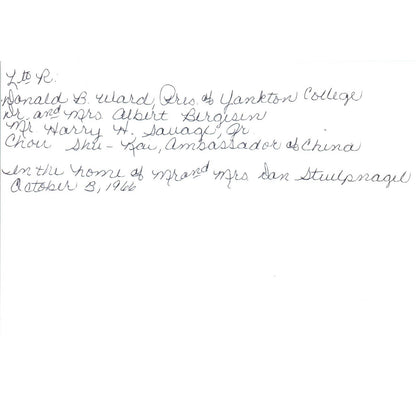 L to R:
Donald B. Ward, Pres. of Yankton College
Dr. and Mrs Albert Birgisin
Mr. Harry H. Savage, Jr.
Chow Shu-Kai, Ambassador of China
In the home of Mr and Mrs Dan Stuelpnagel
October 3, 1966